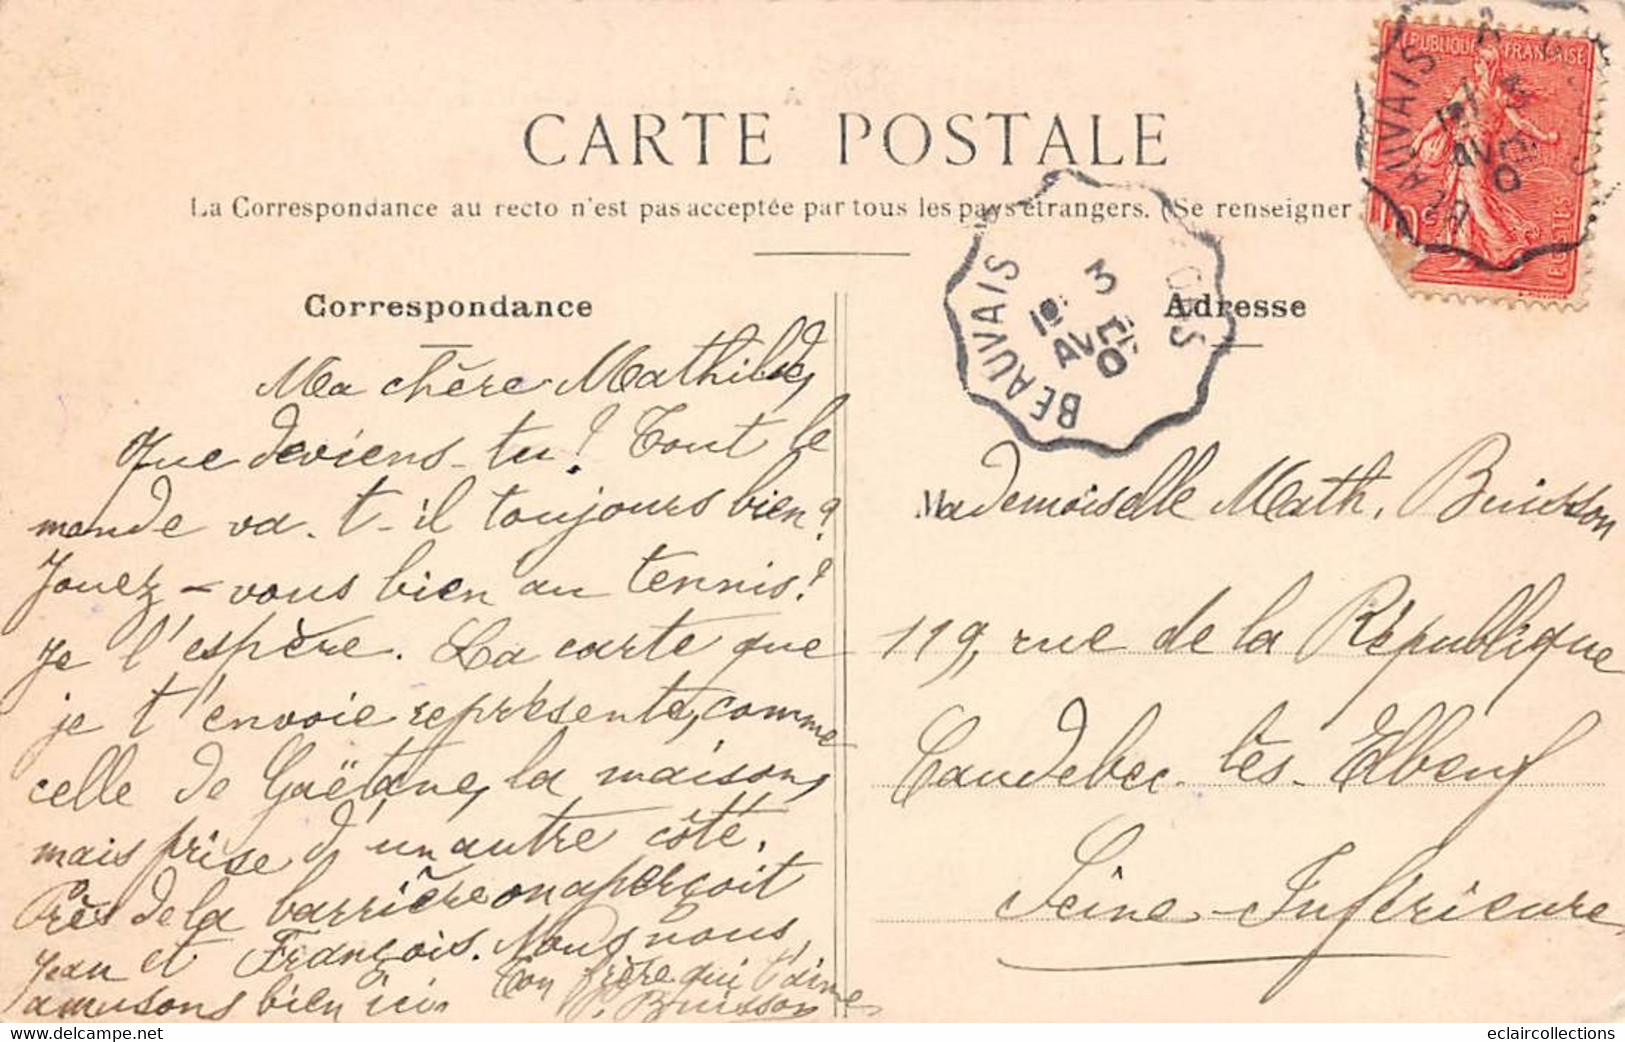 CARTE POSTALE
La Correspondance au recto n'est pas acceptée par tous les pays étrangers. (Se renseigner
RÉPUBLIQUE FRANÇAISE
POSTES
10c
BEAUVAIS
3
AVR
BEAUVAIS
3
AVR
Correspondance
Ma chère Mathilde,
Que deviens-tu? Tout le
monde va-t-il toujours bien?
Jouez-vous bien au tennis?
Je l'espère. La carte que
je t'envoie représente, comme
celle de Gaëtane, la maison,
mais prise d'un autre côté.
Près de la barrière on aperçoit
Jean et François. Nous nous
amusons bien ici.
Ton frère qui t'aime
P. Buisson
Adresse
Mademoiselle Math. Buisson
119, rue de la République
Caudebec-lès-Elbeuf
Seine-Inférieure
www.delcampe.net
eclaircollections